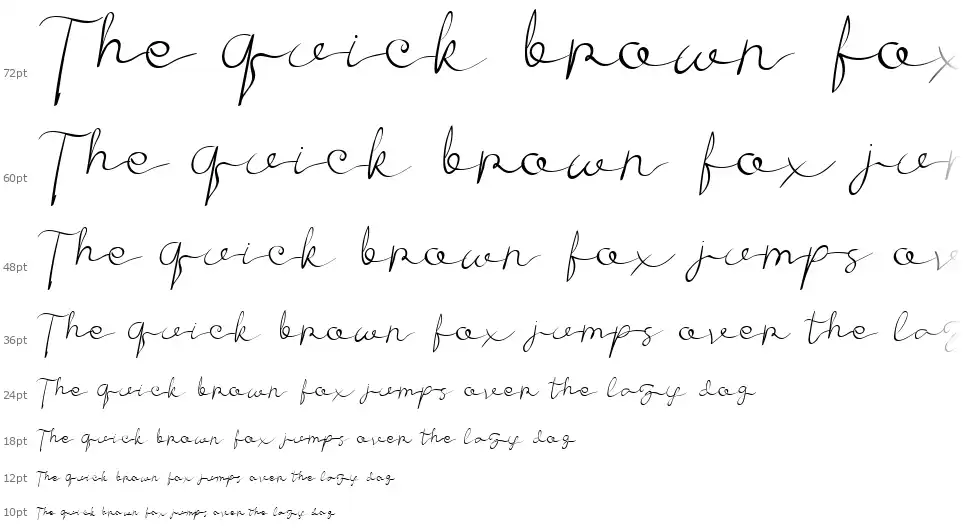 72pt The quick brown fox
60pt The quick brown fox jum
48pt The quick brown fox jumps ov
36pt The quick brown fox jumps over the laz
24pt The quick brown fox jumps over the lazy dog
18pt The quick brown fox jumps over the lazy dog
12pt The quick brown fox jumps over the lazy dog
10pt The quick brown fox jumps over the lazy dog